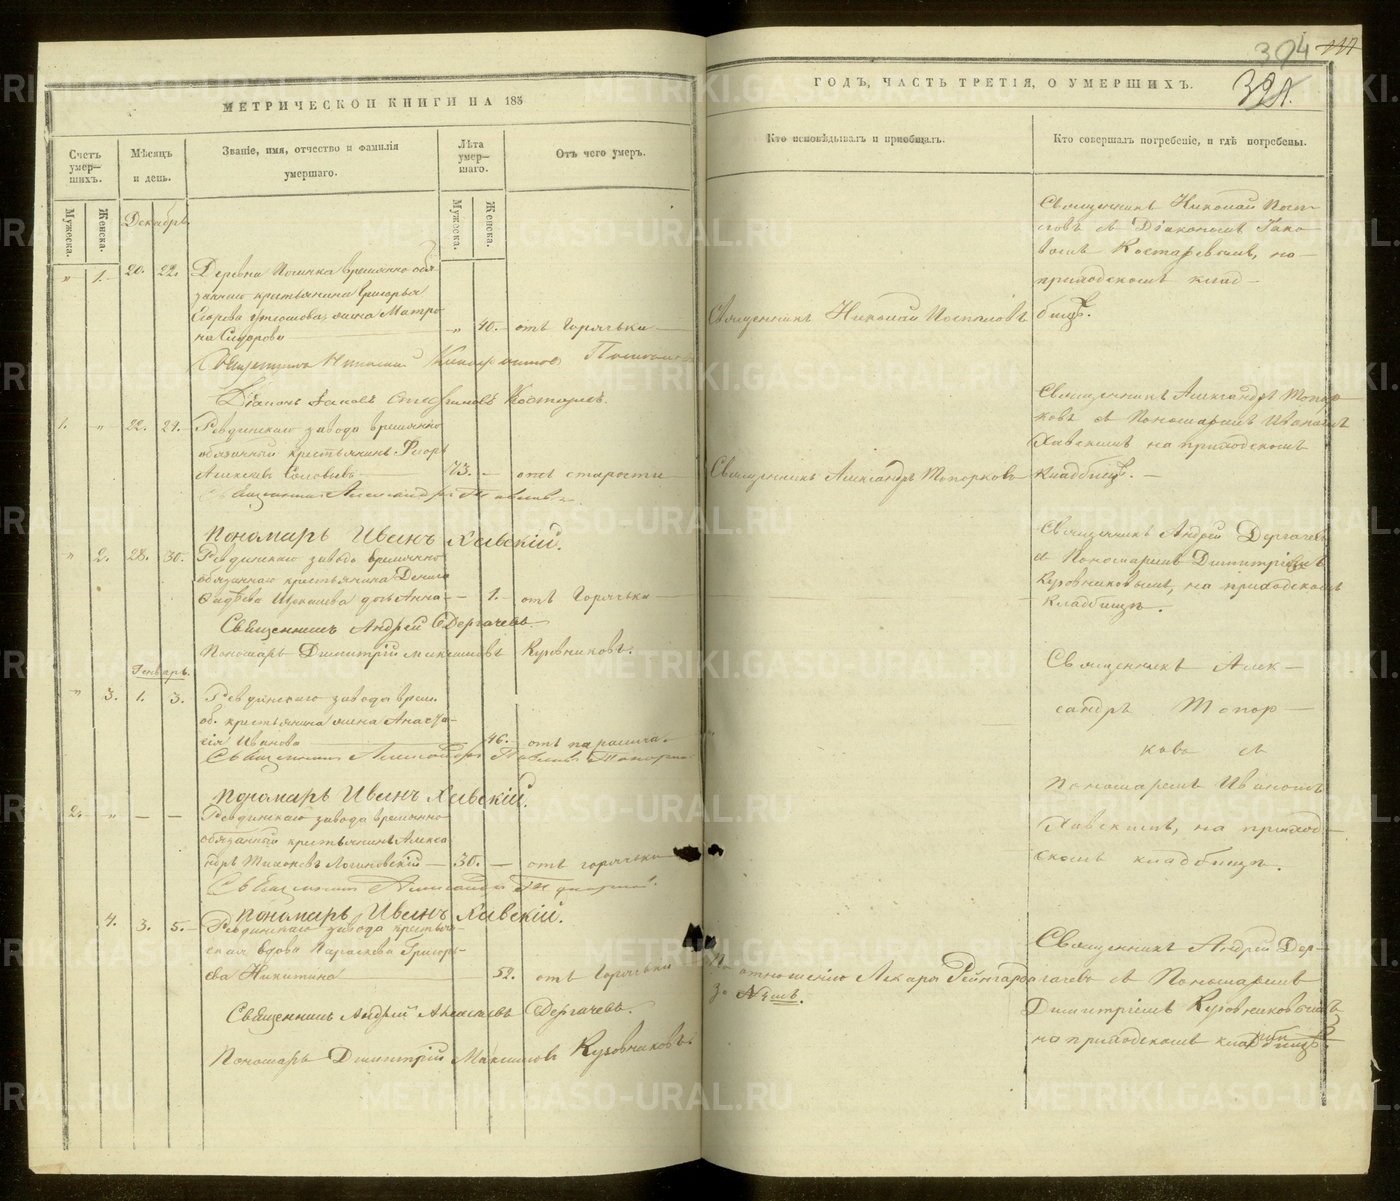 304
МЕТРИЧЕСКОЙ КНИГИ НА 185
ГОДЪ, ЧАСТЬ ТРЕТІЯ, О УМЕРШИХЪ.
Счетъ умер-шихъ.
Мѣсяцъ и день.
Званіе, имя, отчество и фамилія умершаго.
Лѣта умер-шаго.
Отъ чего умеръ.
Кто исповѣдывалъ и пріобщалъ.
Кто совершалъ погребеніе, и гдѣ погребены.
Мужеска.
Женска.
Мужеска.
Женска.
Декабрь
" 1. 20. 22.
Деревни временно обя-
заннаго крестьянина Григорья
Егорова жена Матро-
на Сидорова
" 40. отъ Горячьки
Священникъ Николай
Священникъ Николай
съ Діакономъ Іако-
вомъ Костаревымъ, на
приходскомъ клад-
бищѣ.
Священникъ Николай
Діаконъ Іаковъ Костаревъ.
1. " 22. 24.
Ревдинскаго завода временно
обязанный крестьянинъ
Алексѣевъ
73. - отъ старости
Священникъ Александръ Топорковъ
Священникъ Александръ Топор-
ковъ съ Пономаремъ Иваномъ
Хавскимъ на приходскомъ
кладбищѣ.
Священникъ Александръ
Пономарь Иванъ Хавскій.
" 2. 28. 30.
Ревдинскаго завода временно
обязаннаго крестьянина Дениса
дочь Анна
1. отъ Горячьки
Священникъ Андрей Дергачевъ
и Пономаремъ Димитріемъ
Куровниковымъ, на приходскомъ
кладбищѣ.
Священникъ Андрей Дергачевъ
Пономарь Димитрій Максимовъ Куровниковъ.
Генварь.
" 3. 1. 3.
Ревдинскаго завода врем.
об. крестьянина жена Анаста-
сія Иванова
46. отъ паралича
Священникъ Алек-
сандръ Топор-
ковъ съ
Пономаремъ Иваномъ
Хавскимъ, на приход-
скомъ кладбищѣ.
Священникъ Александръ Павловъ
Пономарь Иванъ Хавскій.
2. " — —
Ревдинскаго завода временно
обязанный крестьянинъ Алекса-
ндръ Тихоновъ Логиновскій
30. — отъ горячьки
Священникъ Александръ
Пономарь Иванъ Хавскій.
4. 3. 5.
Ревдинскаго завода крестьян-
ская вдова Параскева Григорь-
ева Никитина
52. отъ Горячьки
По отношенію Лекаря Рейнгарда
за №
Священникъ Андрей Дер-
гачевъ съ Пономаремъ
Димитріемъ Куровниковымъ
на приходскомъ кладбищѣ.
Священникъ Андрей Алексѣевъ Дергачевъ.
Пономарь Димитрій Максимовъ Куровниковъ.
METRIKI.GASO-URAL.RU